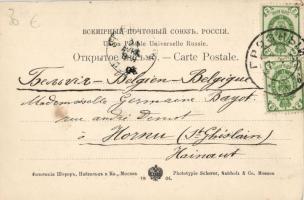 ВСЕМІРНЫЙ ПОЧТОВЫЙ СОЮЗЪ. РОССІЯ.
Union Postale Universelle Russie.
Открытое письмо. — Carte Postale.
Бельгія — Belgien — Belgique
Mademoiselle Germaine Bagot
rue andré Demot
Hornu (St Ghislain)
Hainaut
Фототипія Шереръ, Набгольцъ и Ко., Москва
Phototypie Scherer, Nabholz & Co., Moscou